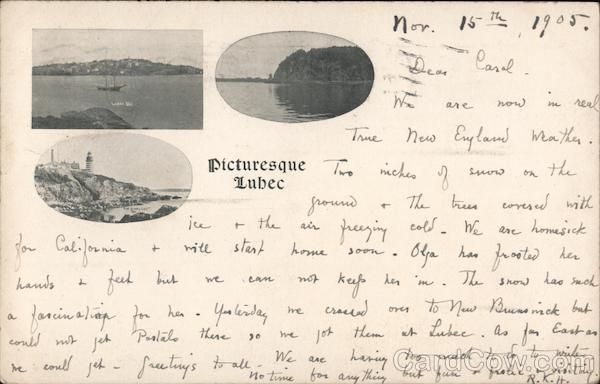 Nov. 15th, 1905.
Dear Carol.
We are now in real
True New England Weather.
Picturesque
Lubec
Two inches of snow on the
ground & the trees covered with
ice & the air freezing cold - We are homesick
for California & will start home soon. Olga has frosted her
hands & feet but we can not keep her in. The snow has such
a fascination for her. Yesterday we crossed over to New Brunswick but
could not get Postals there so we got them at Lubec. As far East as
we could get. - Greetings to all. We are having too much to do to write
No time for anything but fun
R.K.H.
CardCow.com